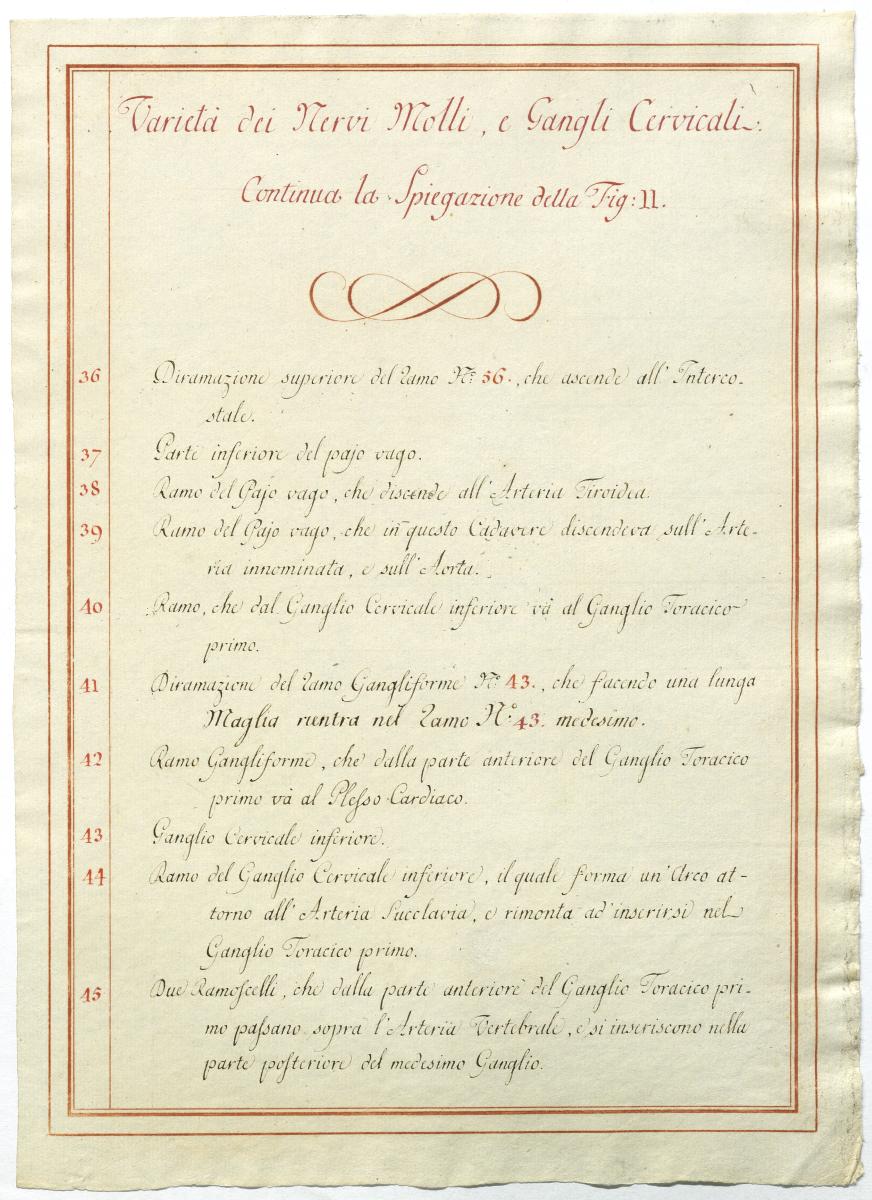 Varietà dei Nervi Molli, e Gangli Cervicali.
Continua la Spiegazione della Fig: II.
36 Diramazione superiore del Ramo N.º 56., che ascende all' Interco-
stale.
37 Parte inferiore del pajo vago.
38 Ramo del Pajo vago, che discende all' Arteria Tiroidea.
39 Ramo del Pajo vago, che in questo Cadavere discendeva sull' Arte-
ria innominata, e sull' Aorta.
40 Ramo, che dal Ganglio Cervicale inferiore và al Ganglio Toracico
primo.
41 Diramazione del Ramo Gangliforme N.º 43., che facendo una lunga
Maglia rientra nel Ramo N.º 43. medesimo.
42 Ramo Gangliforme, che dalla parte anteriore del Ganglio Toracico
primo và al Plesso Cardiaco.
43 Ganglio Cervicale inferiore.
44 Ramo del Ganglio Cervicale inferiore, il quale forma un' Arco at-
torno all' Arteria Succlavia, e rimonta ad' inserirsi nel
Ganglio Toracico primo.
45 Due Ramoscelli, che dalla parte anteriore del Ganglio Toracico pri-
mo passano sopra l' Arteria Vertebrale, e si inseriscono nella
parte posteriore del medesimo Ganglio.